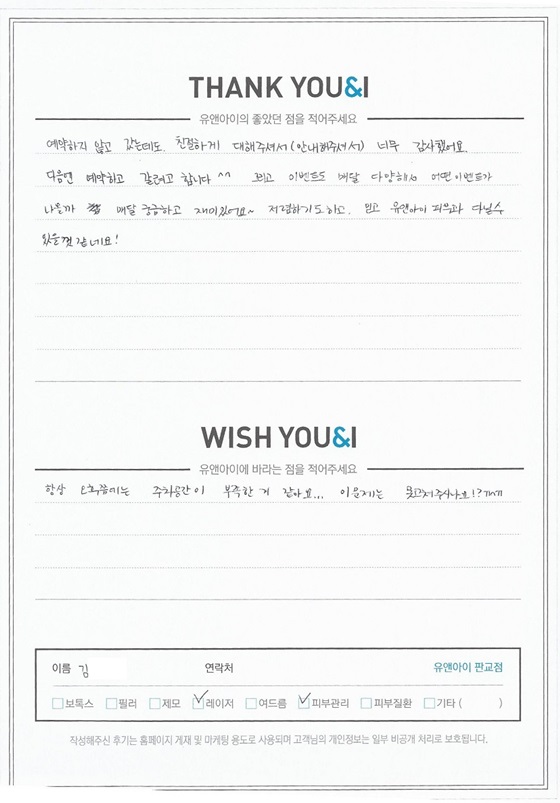 THANK YOU&I
유앤아이의 좋았던 점을 적어주세요
예약하지 않고 갔는데도 친절하게 대해주셔서(안내해주셔서) 너무 감사했어요.
다음엔 예약하고 갈려고 합니다^^ 그리고 이벤트도 매달 다양해서 어떤이벤트가
나올까 매달 궁금하고 재미있어요~ 저렴하기도하고. 믿고 유앤아이 피부과 다닐수
있을껏 같네요!
WISH YOU&I
유앤아이에 바라는 점을 적어주세요
항상 오후쯤에는 주차공간이 부족한 거 같아요... 이문제는 못고쳐주시나요!?
이름 김 연락처 유앤아이 판교점
보톡스 필러 제모 레이저 여드름 피부관리 피부질환 기타 ( )
작성해주신 후기는 홈페이지 게재 및 마케팅 용도로 사용되며 고객님의 개인정보는 일부 비공개 처리로 보호됩니다.